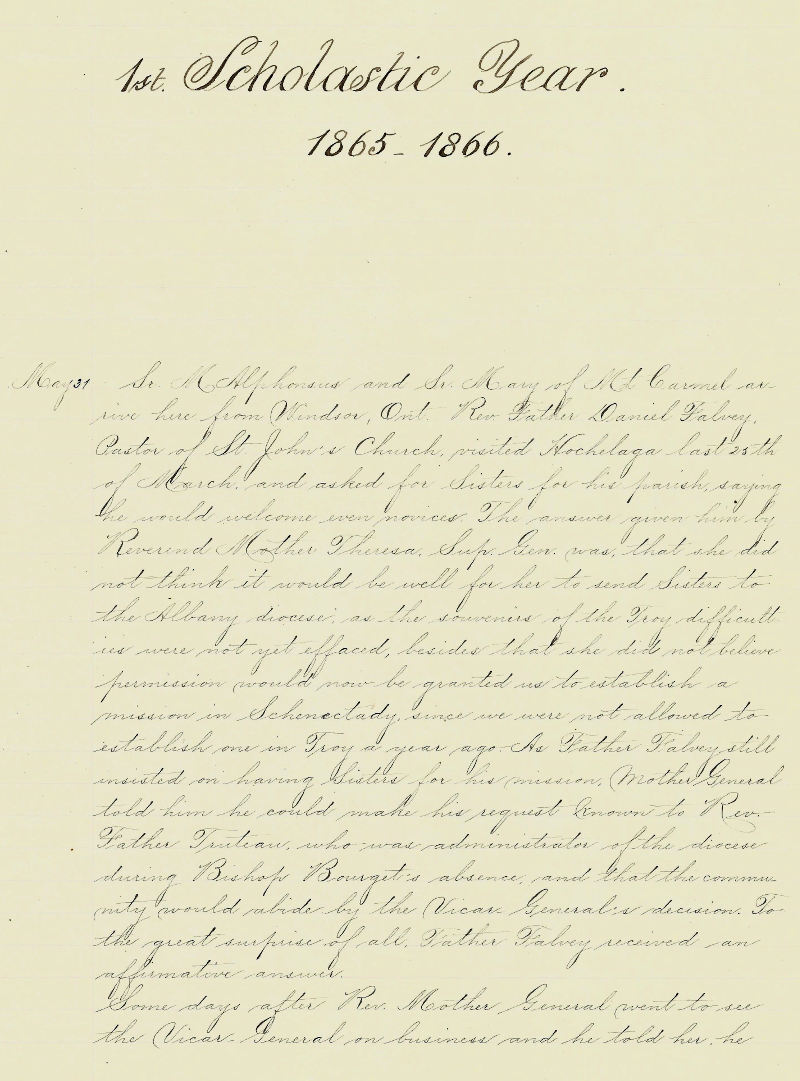 1st. Scholastic Year.
1865 - 1866.
May 31 Sr. M. Alphonsus and Sr. Mary of Mt Carmel ar-
rive here from Windsor, Ont. Rev. Father Daniel Falvey,
Pastor of St. John's Church, visited Hochelaga last 25th
of March, and asked for Sisters for his parish, saying
he would welcome even novices. The answer given him by
Reverend Mother Theresa, Sup. Gen. was, that she did
not think it would be well for her to send Sisters to
the Albany diocese, as the souvenirs of the Troy difficult-
ies were not yet effaced, besides that she did not believe
permission would now be granted us to establish a
mission in Schenectady, since we were not allowed to
establish one in Troy a year ago. As Father Falvey still
insisted on having Sisters for his mission, Mother General
told him he could make his request known to Rev.
Father Truteau, who was administrator of the diocese
during Bishop Bourget's absence, and that the commu-
nity would abide by the Vicar General's decision. To
the great surprise of all, Father Falvey received an
affirmative answer.
Some days after Rev. Mother General went to see
the Vicar-General on business and he told her, he